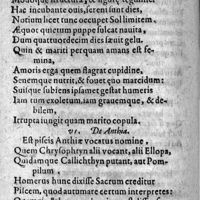 Hac incubante ouis, serenī sunt dies,
Notium licet tunc occupet Sol limitem,
Æquot quietum puppe fulcat nauita,
Dum quattuordecim dies sæuit gelu.
Quin & mariti perquam amans est fe-
mina,
Amoris erga quem flagrat cupidine,
Senemque nutrit, & fouet quo marcidum:
Suisque subiens ipsum gestat humeris
Iam tum exoletum, iam grauemque, & de-
bilem,
Irrupta iungit quam marito copula.
VI. De Anthia.
Est piscis Anthiæ vocatus nomine,
Quem Chrysophryn alij vocant, alij Ellopa,
Quidamque Callichthyn putant, aut Pom-
pilum,
Homerus hunc dixisse Sacrum creditur
Piscem, quod autumare certum interpretes: